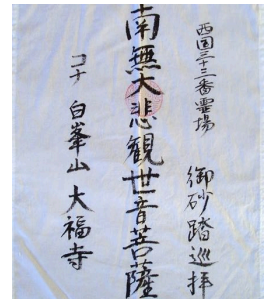 西国三十三番霊場
御砂踏巡拝
南無大悲観世音菩薩
コナ 白峯山 大福寺